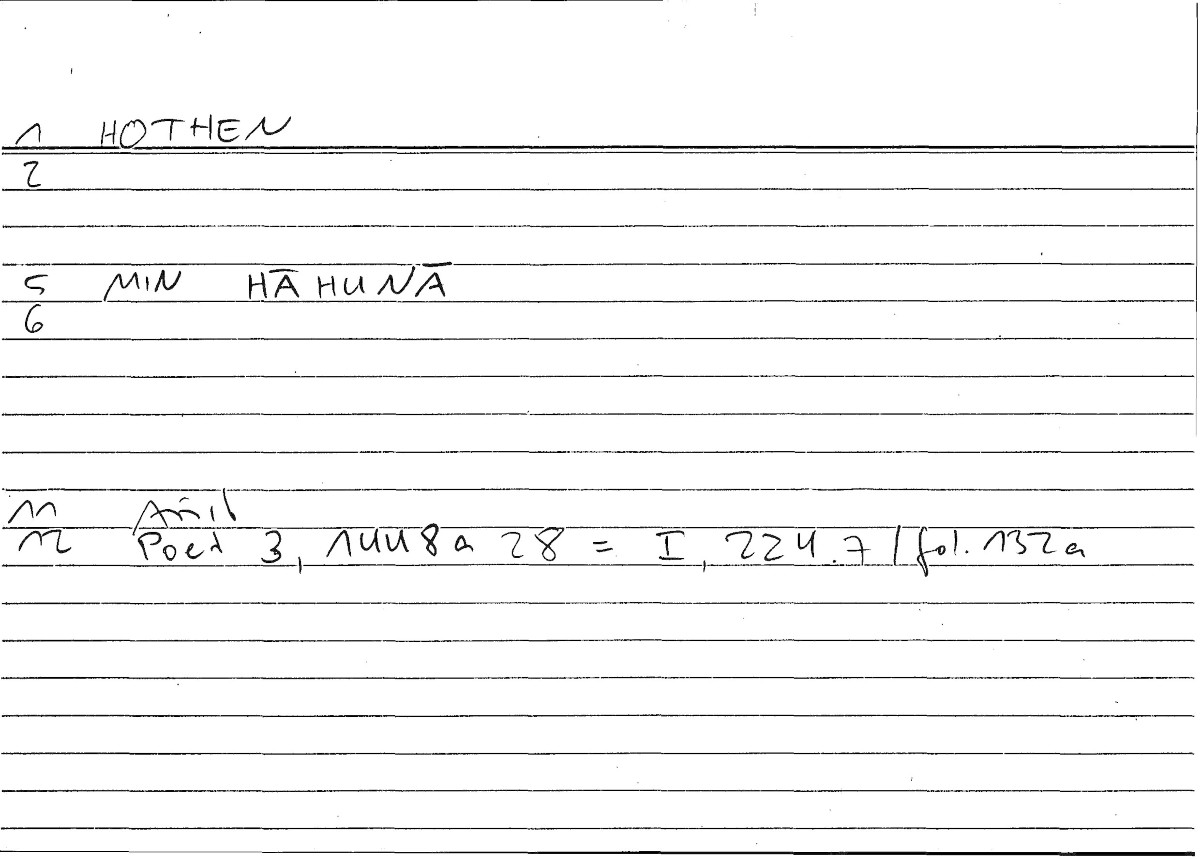 1 HOTHEN
2
5 MIN HĀHUNĀ
6
11 Arist
12 Poet 3, 1448a 28 = I, 224.7 / fol. 132a